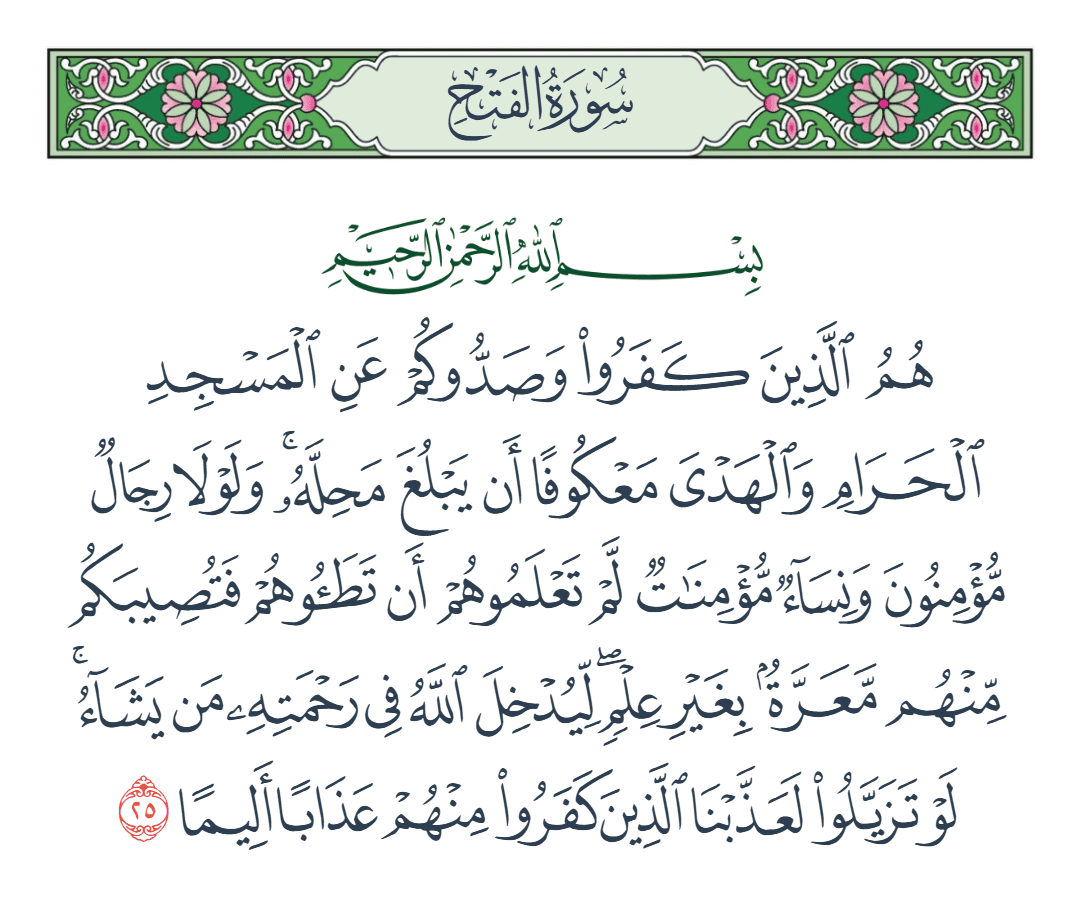 سُورَةُ الفَتْحِ
بِسْمِ ٱللَّهِ ٱلرَّحْمَٰنِ ٱلرَّحِيمِ
هُمُ ٱلَّذِينَ كَفَرُوا۟ وَصَدُّوكُمْ عَنِ ٱلْمَسْجِدِ
ٱلْحَرَامِ وَٱلْهَدْىَ مَعْكُوفًا أَن يَبْلُغَ مَحِلَّهُۥ ۚ وَلَوْلَا رِجَالٌ
مُّؤْمِنُونَ وَنِسَآءٌ مُّؤْمِنَٰتٌ لَّمْ تَعْلَمُوهُمْ أَن تَطَـُٔوهُمْ فَتُصِيبَكُم
مِّنْهُم مَّعَرَّةٌۢ بِغَيْرِ عِلْمٍ ۖ لِّيُدْخِلَ ٱللَّهُ فِى رَحْمَتِهِۦ مَن يَشَآءُ ۚ
لَوْ تَزَيَّلُوا۟ لَعَذَّبْنَا ٱلَّذِينَ كَفَرُوا۟ مِنْهُمْ عَذَابًا أَلِيمًا ٢٥